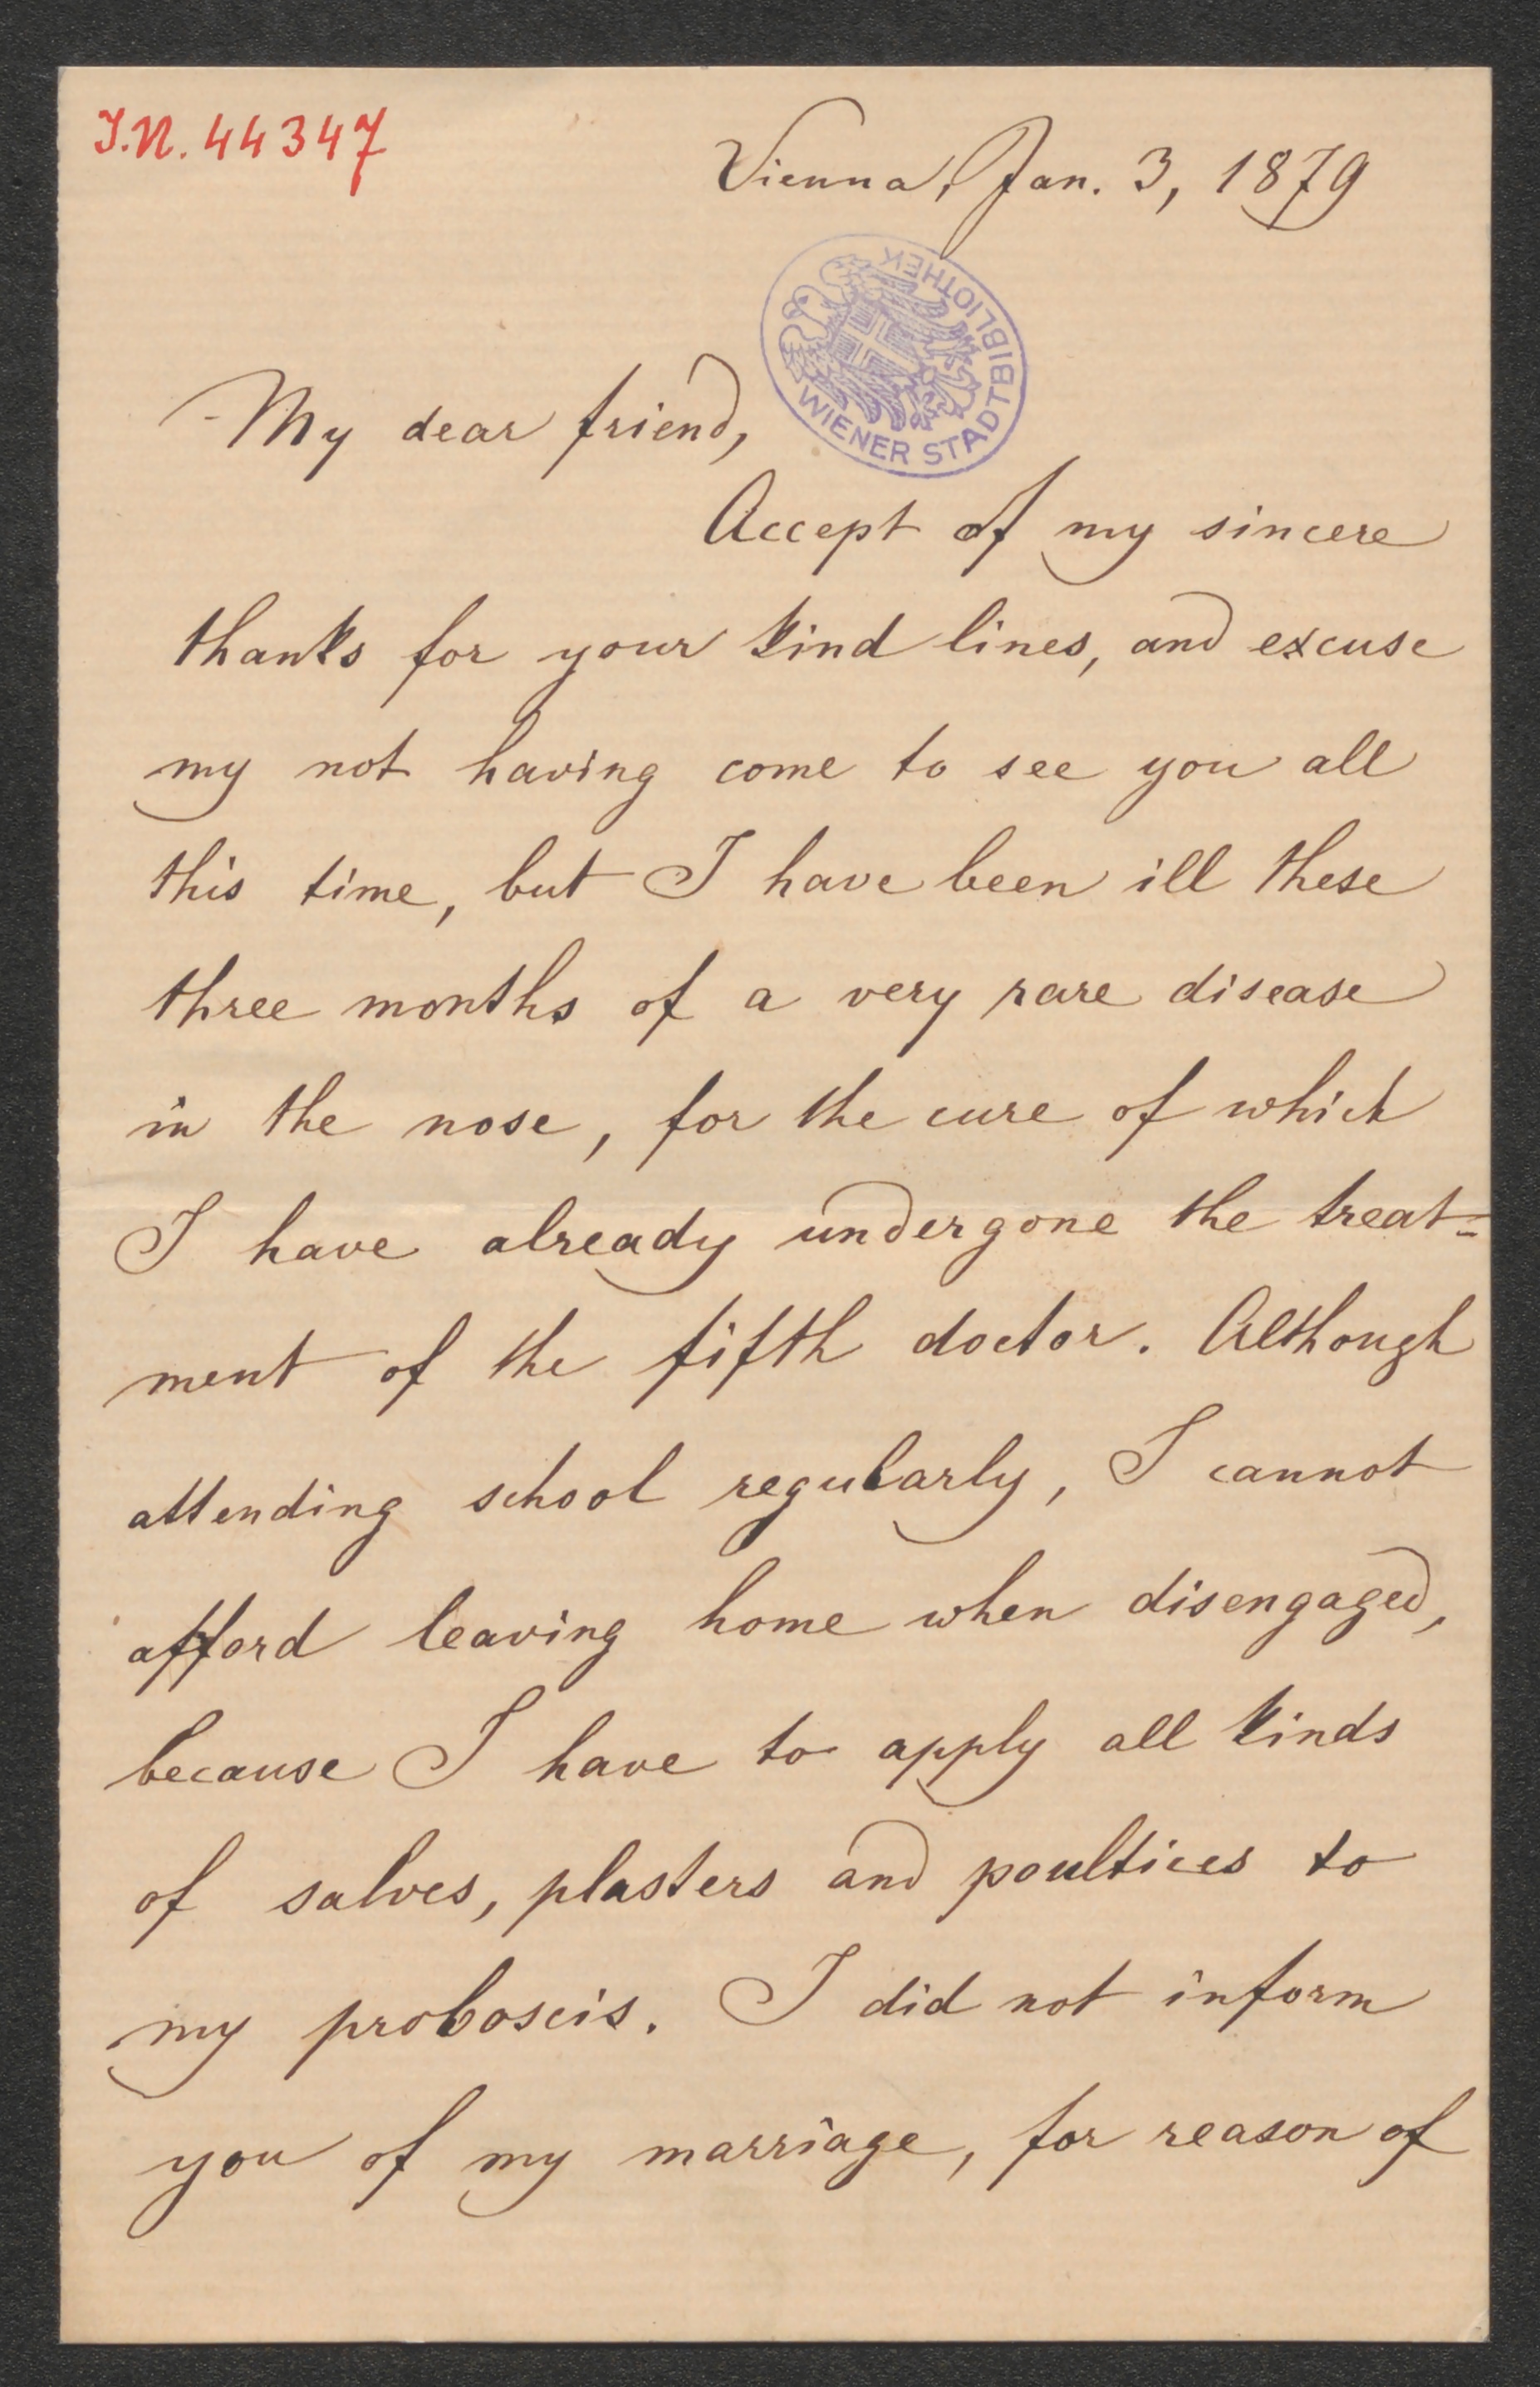 I.N. 44347
Vienna, Jan. 3, 1879
WIENER STADTBIBLIOTHEK
My dear friend,
Accept of my sincere
thanks for your kind lines, and excuse
my not having come to see you all
this time, but I have been ill these
three months of a very rare disease
in the nose, for the cure of which
I have already undergone the treat=
ment of the fifth doctor. Although
attending school regularly, I cannot
afford leaving home when disengaged,
because I have to apply all kinds
of salves, plasters and poultices to
my proboscis. I did not inform
you of my marriage, for reason of